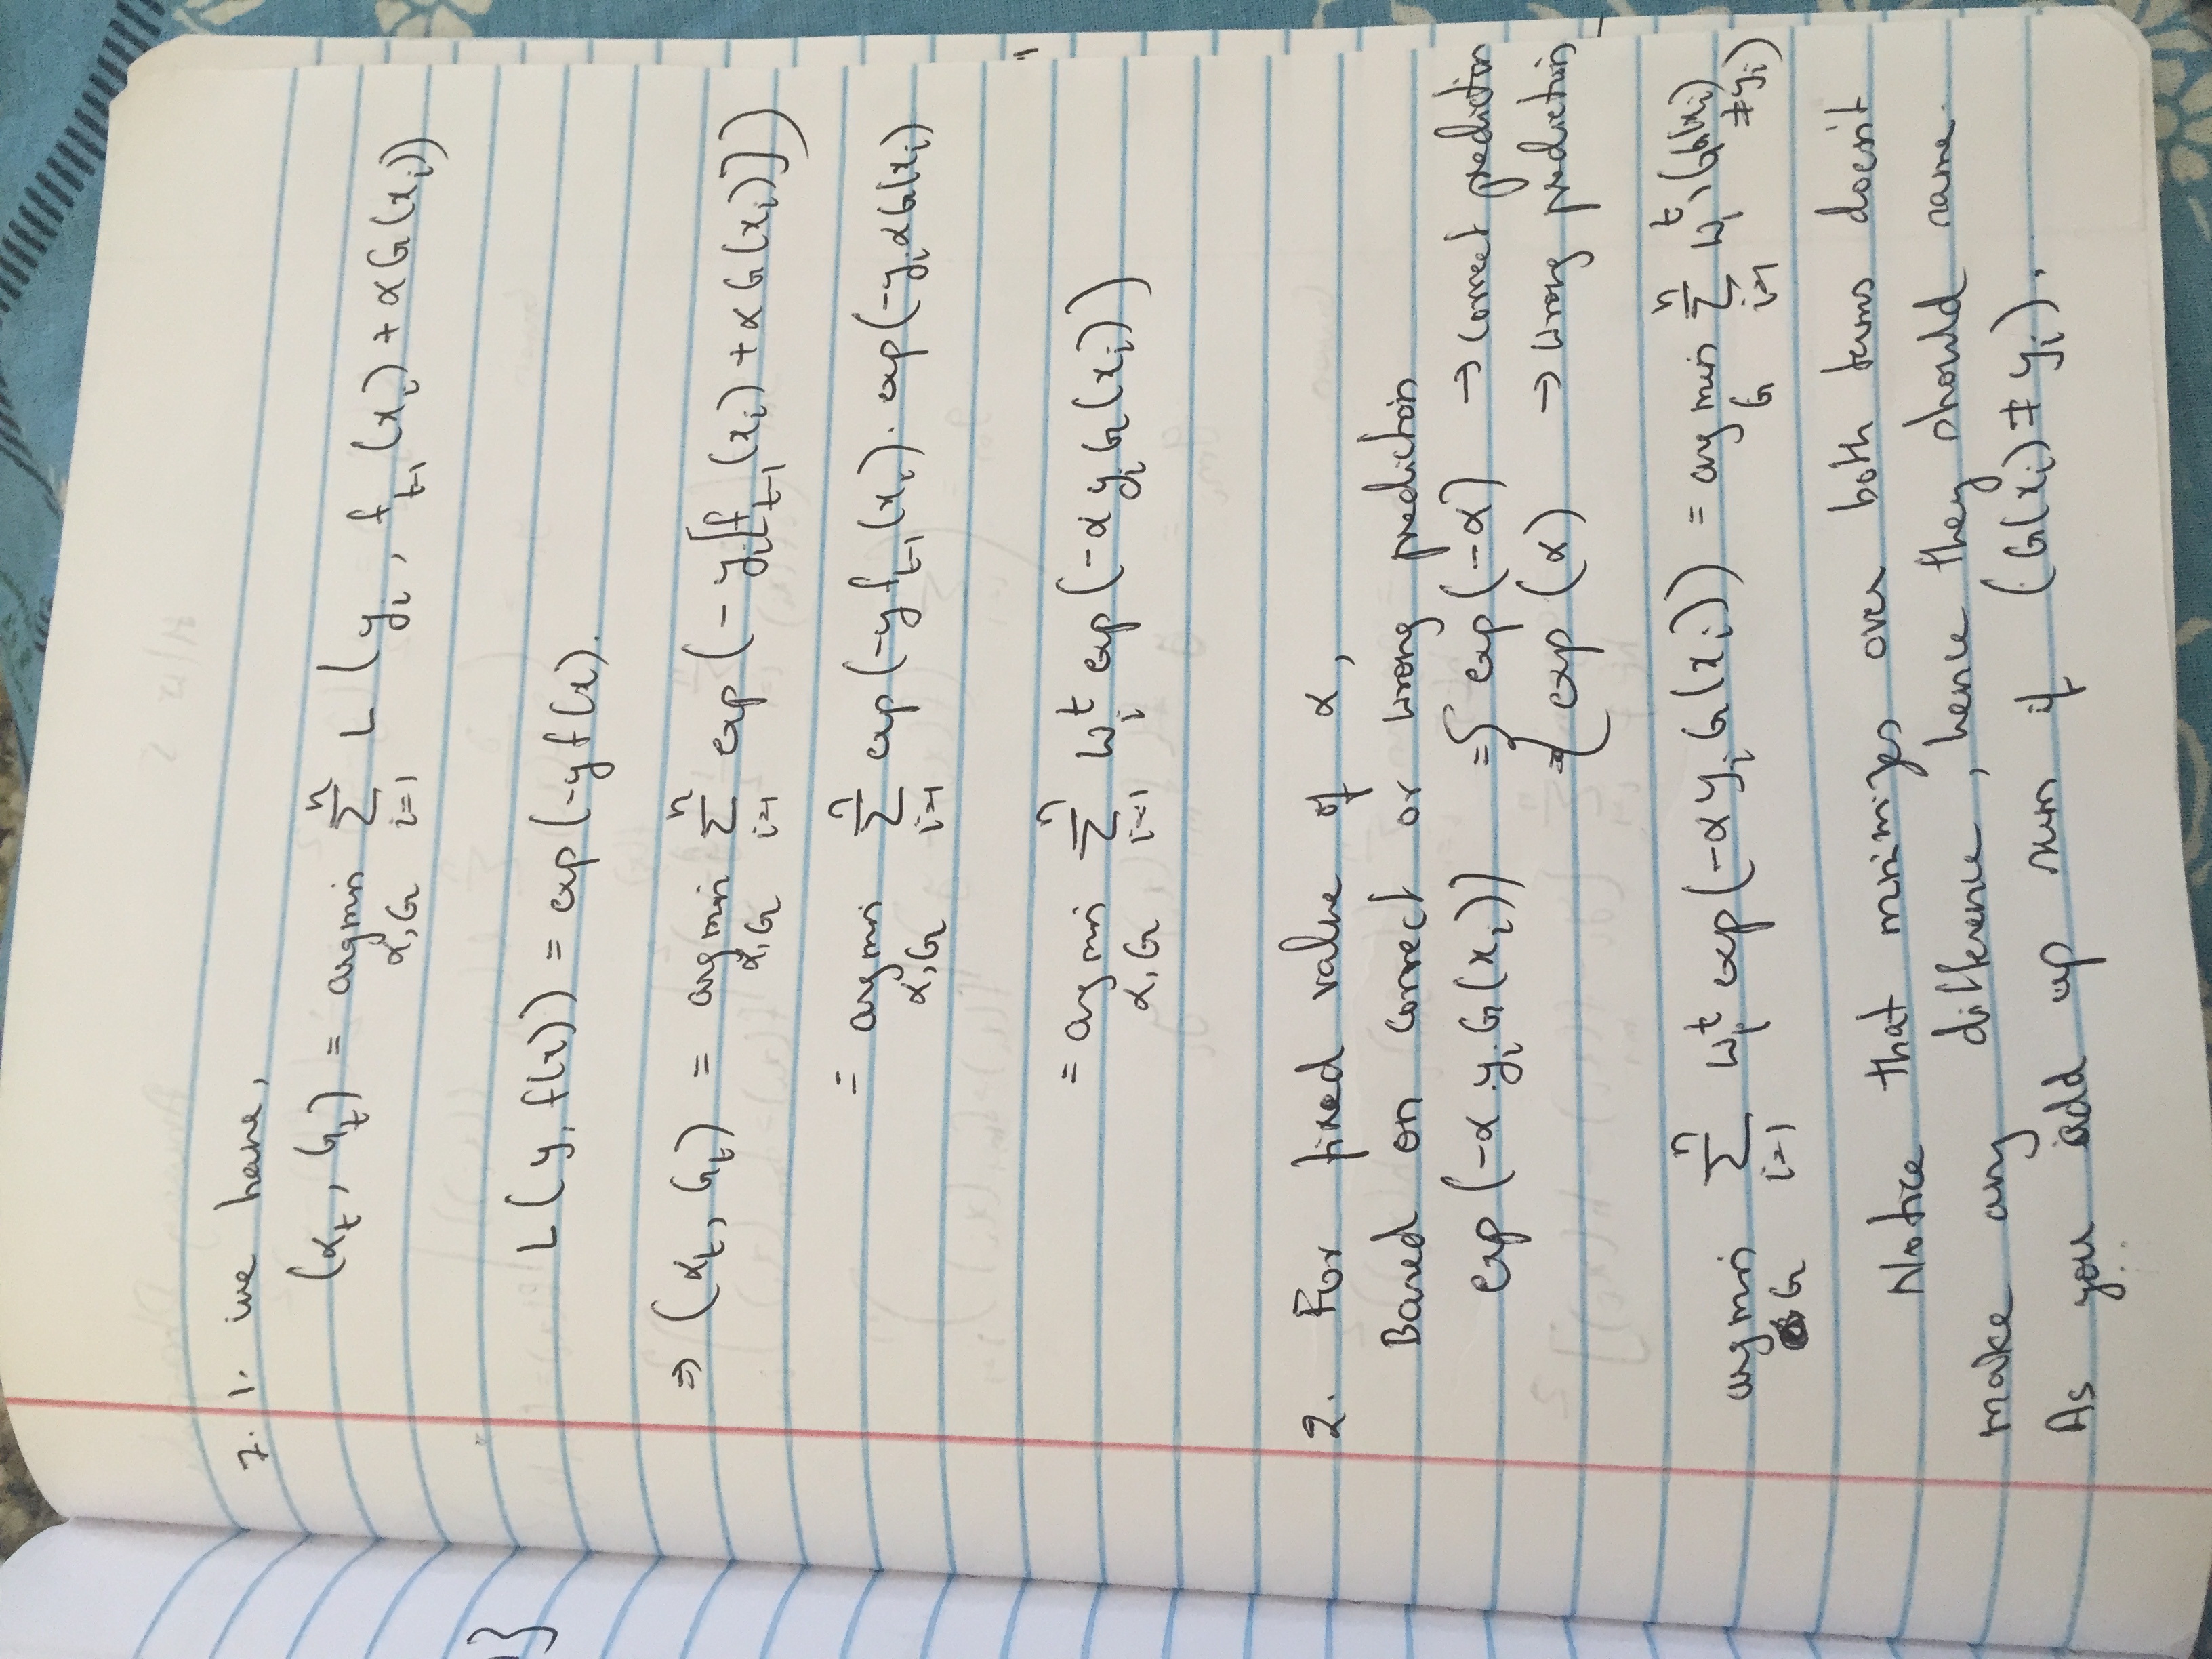 7. 1. we have,
(α_t, G_t) = argmin_{α,G} Σ_{i=1}^{n} L(y_i, f_{t-1}(x_i) + αG(x_i))
}
L(y, f(x)) = exp(-yf(x).
⇒ (α_t, G_t) = argmin_{α,G} Σ_{i=1}^{n} exp(-y_i[f_{t-1}(x_i) + αG(x_i)])
= argmin_{α,G} Σ_{i=1}^{n} exp(-y f_{t-1}(x_i). exp(-y_i αG(x_i)
= argmin_{α,G} Σ_{i=1}^{n} w_i^t exp(-α y_i G(x_i))
2. For fixed value of α,
Based on correct or wrong prediction
exp(-α.y_i.G(x_i)) = { exp(-α) → correct prediction
exp(α) → wrong prediction
argmin_{G} Σ_{i=1}^{n} w_i^t exp(-α y_i G(x_i)) = argmin_{G} Σ_{i=1}^{n} w_i^t 1(G(x_i) ≠ y_i)
Notice that minimizes over both terms doesn't
make any difference, hence they should same.
As you add up sum if (G(x_i) ≠ y_i).